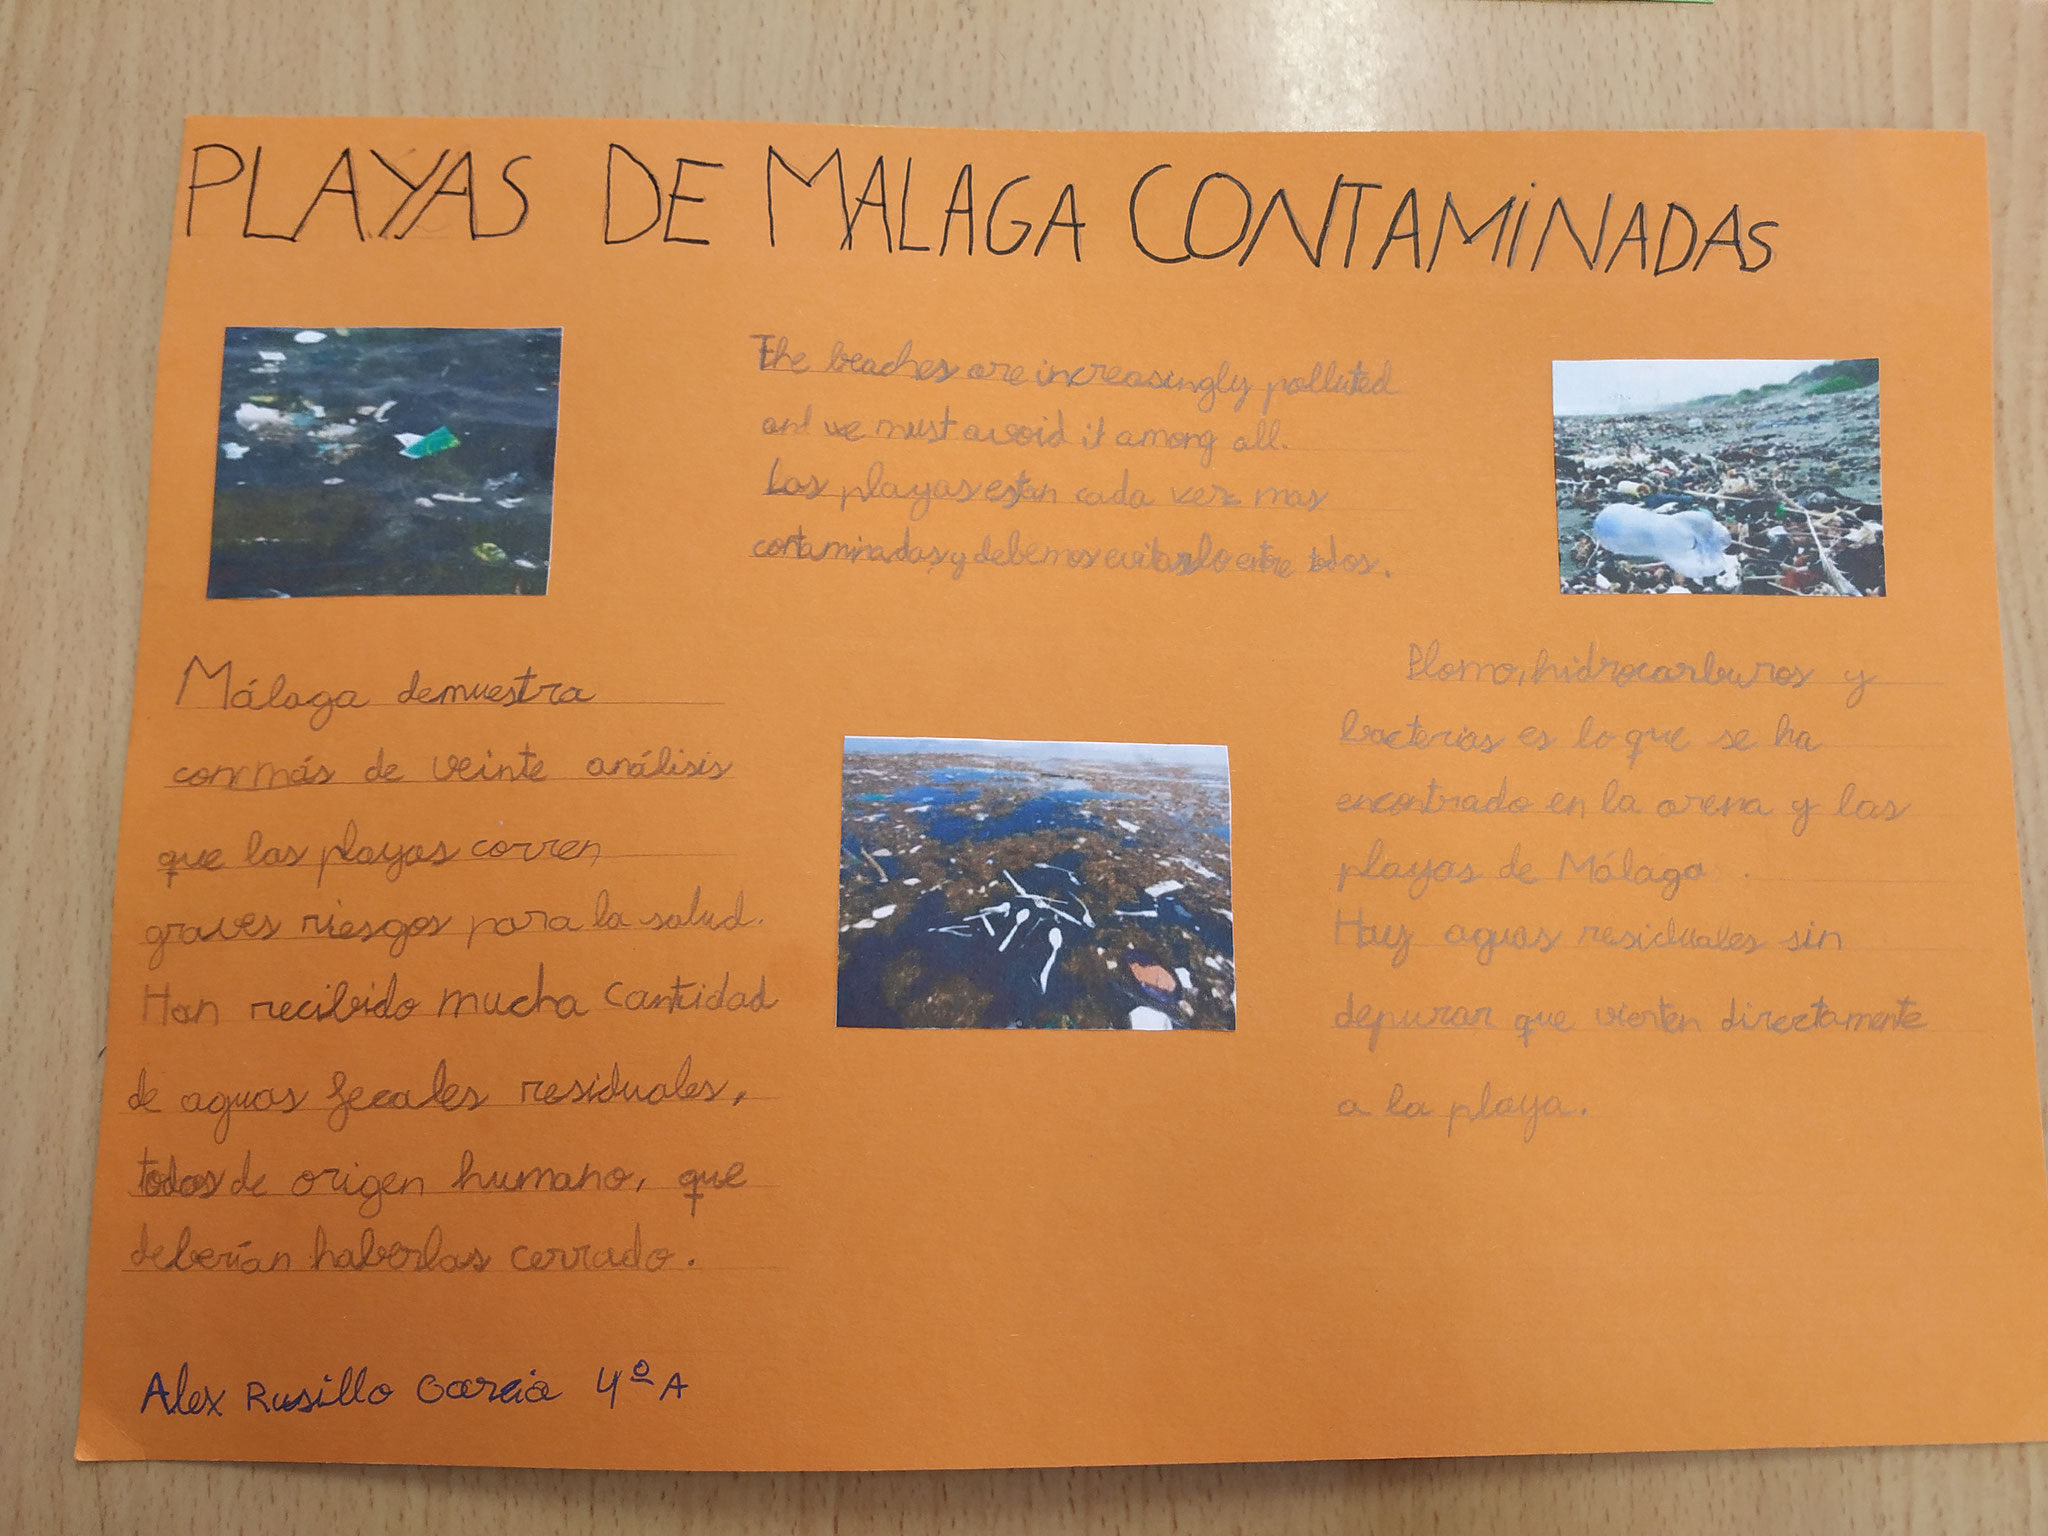 PLAYAS DE MALAGA CONTAMINADAS
The beaches are increasingly polluted
and we must avoid it among all.
Las playas estan cada vez mas
contaminadas y debemos evitarlo entre todos.
Málaga demuestra
con más de veinte análisis
que las playas corren
graves riesgos para la salud.
Han recibido mucha cantidad
de aguas fecales residuales,
todas de origen humano, que
deberían haberlas cerrado.
Plomo, hidrocarburos y
bacterias es lo que se ha
encontrado en la arena y las
playas de Málaga.
Hay aguas residuales sin
depurar que vierten directamente
a la playa.
Alex Rusillo García 4º A